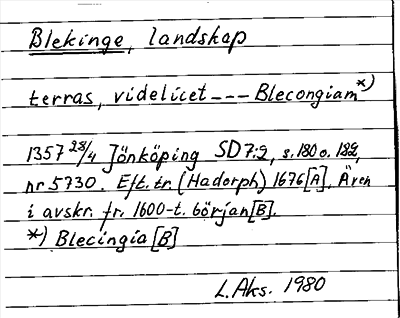 Blekinge, landskap
terras, videlicet --- Blecongiam*)
1357 28/4 Jönköping SD 7:2, s. 180 o. 182,
nr 5730. Eft. tr. (Hadorph) 1676 [A]. Även
i avskr. fr. 1600-t. början [B].
*) Blecingia [B]
L. Aks. 1980